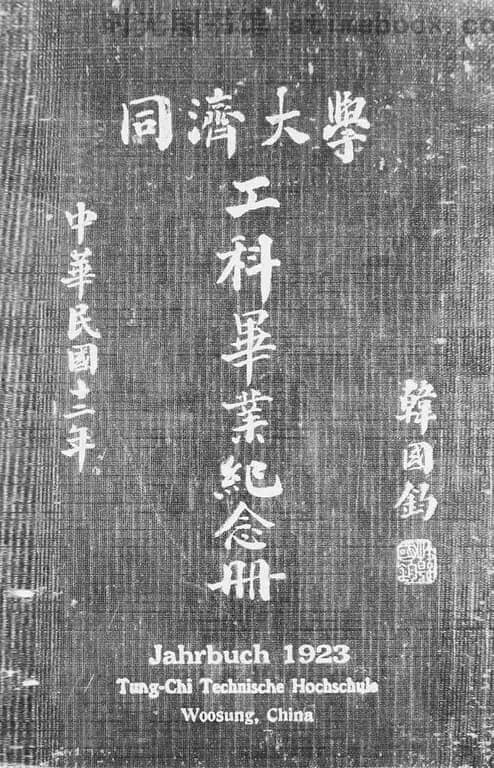 同濟大學
工科畢業紀念冊
中華民國十二年
韓國鈞
Jahrbuch 1923
Tung-Chi Technische Hochschule
Woosung, China